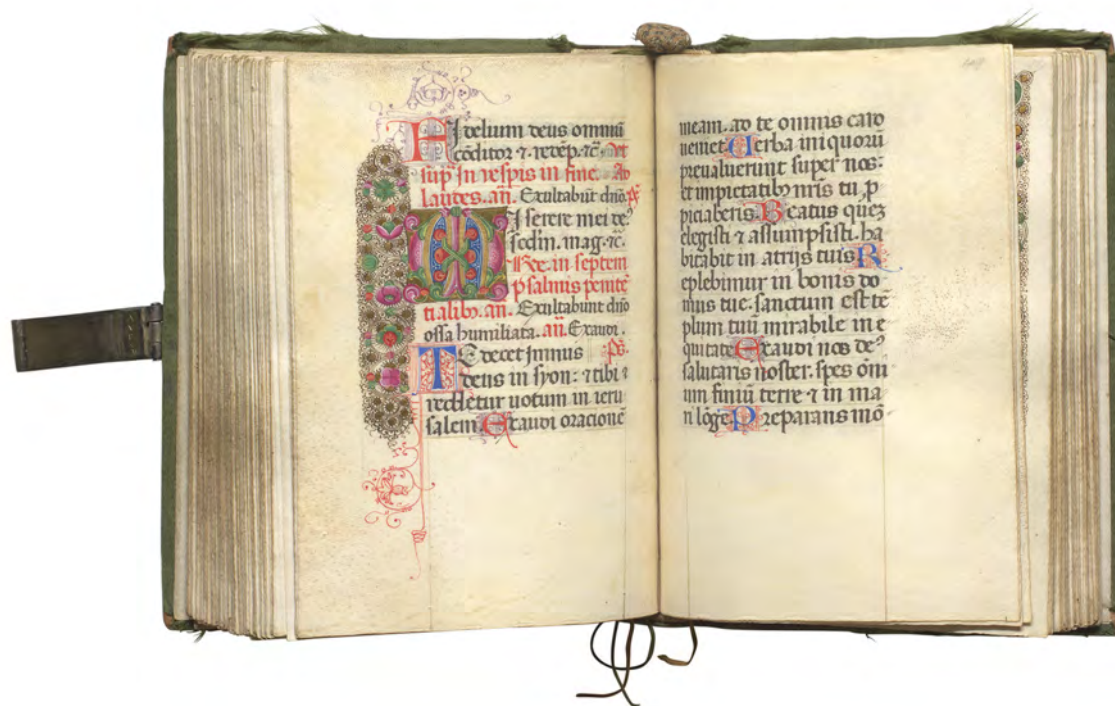 Fidelium deus omniũ
cõditor ⁊ redẽp. ⁊c̃. Vt
sup̃ in vespis in fine. Ad
laudes. añ. Exultabũt dño. p̃s
Miserere mei de⁹
secdm. mag. ⁊c̃.
in septem
psalmis penitẽ
tialibꝫ. añ. Exultabunt dño
ossa humiliata. añ. Exaudi.
Te decet jmnus p̃s.
deus in syon: ⁊ tibi
reddetur uotum in ieru
salem. Exaudi oracionẽ
meam. ad te omnis caro
ueniet. Uerba iniquorũ
preualuerunt super nos:
et impietatibꝫ nr̃is tu ꝓ
piciaberis. Beatus quez
elegisti ⁊ assumpsisti. ha
bitabit in atrijs tuis. R
eplebimur in bonis do
mus tue. sanctum est tẽ
plum tuũ mirabile in e
quitate. Exaudi nos de⁹
salutaris noster. spes om̃i
um finiũ terre ⁊ in ma
ri lõge. Preparans mõ